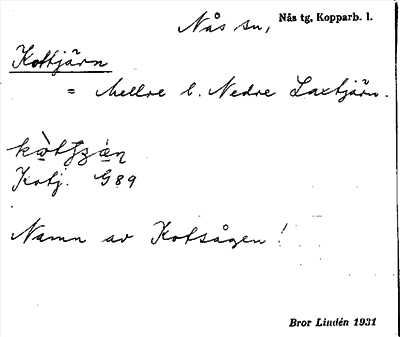 Nås sn, Nås tg, Kopparb. l.
Kottjärn
= Mellre l. Nedre Laxtjärn.
Kotj. G89
Namn av Kotsågen!
Bror Lindén 1931